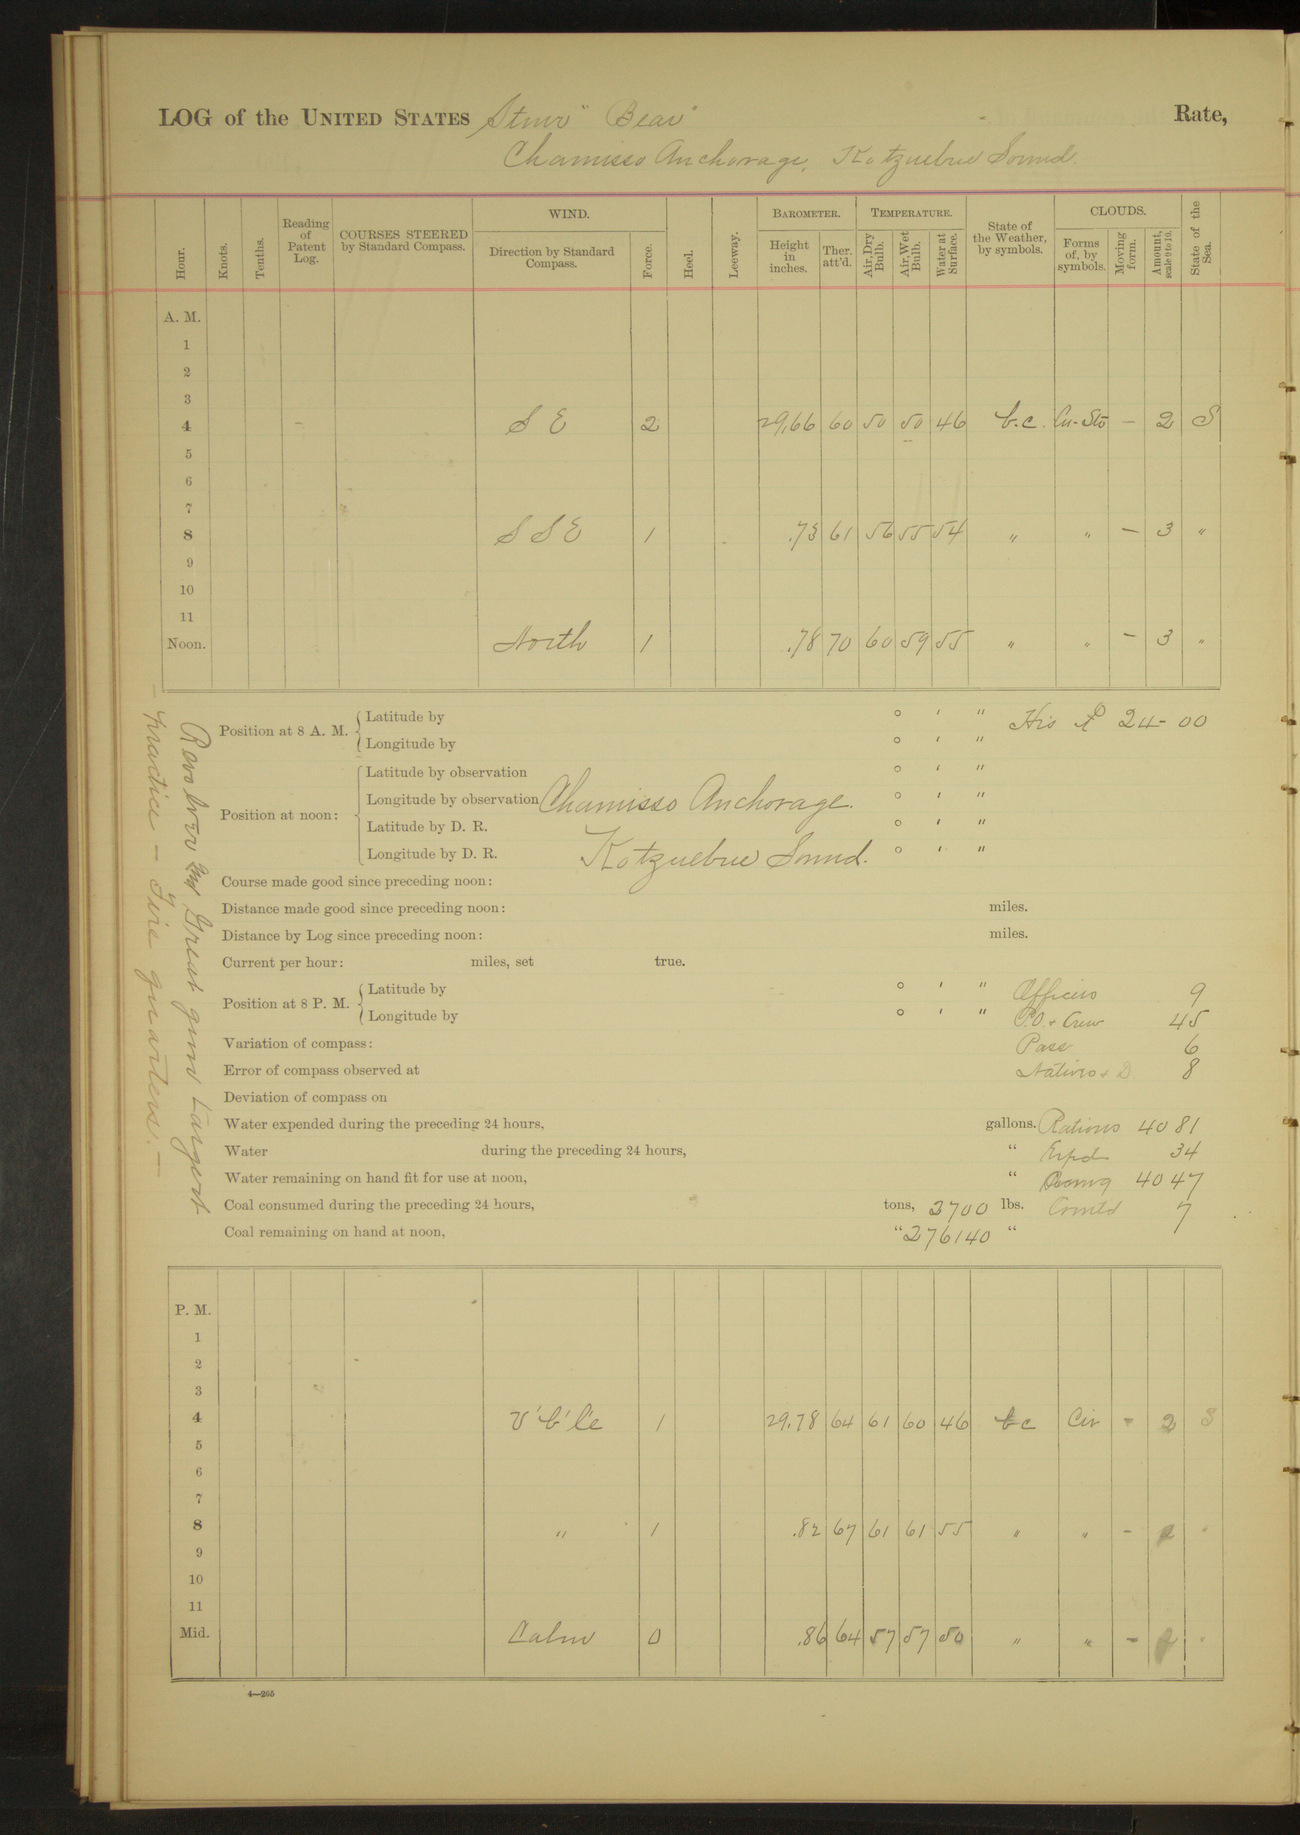 LOG of the UNITED STATES Stmr "Bear" Rate,
Chamisso Anchorage, Kotzuebue Sound.
Hour.
Knots.
Tenths.
Reading of Patent Log.
COURSES STEERED by Standard Compass.
WIND.
Direction by Standard Compass.
Force.
Heel.
Leeway.
BAROMETER.
Height in inches.
Ther. att'd.
TEMPERATURE.
Air, Dry Bulb.
Air, Wet Bulb.
Water at Surface.
State of the Weather, by symbols.
CLOUDS.
Forms of, by symbols.
Moving form.
Amount, scale 0 to 10.
State of the Sea.
A. M.
1
2
3
4 S E 2 29.66 60 50 50 46 b.c. Cu-Sto - 2 S
5
6
7
8 S S E 1 .73 61 56 55 54 " " - 3 "
9
10
11
Noon. North 1 .78 70 60 59 55 " " - 3 "
Position at 8 A. M. Latitude by ° ' "
Longitude by ° ' "
24-00
Position at noon:
Latitude by observation ° ' "
Longitude by observation Chamisso Anchorage. ° ' "
Latitude by D. R. ° ' "
Longitude by D. R. Kotzuebue Sound. ° ' "
Course made good since preceding noon:
Distance made good since preceding noon: miles.
Distance by Log since preceding noon: miles.
Current per hour: miles, set true.
Position at 8 P. M. Latitude by ° ' " Officers 9
Longitude by ° ' " P.O. + Crew 45
Variation of compass: Pass 6
Error of compass observed at Natives + D 8
Deviation of compass on
Water expended during the preceding 24 hours, gallons. Rations 4081
Water during the preceding 24 hours, " Expd 34
Water remaining on hand fit for use at noon, " Remng 4047
Coal consumed during the preceding 24 hours, tons, 2700 lbs. 7
Coal remaining on hand at noon, " 276140 "
Revolver and Great gun target
practice - Fire quarters. -
P. M.
1
2
3
4 V'b'le 1 29.78 64 61 60 46 bc Cir - 2 S
5
6
7
8 " 1 .82 67 61 61 55 " " - 2 "
9
10
11
Mid. Calm 0 .86 64 57 57 50 " " - "
4—265